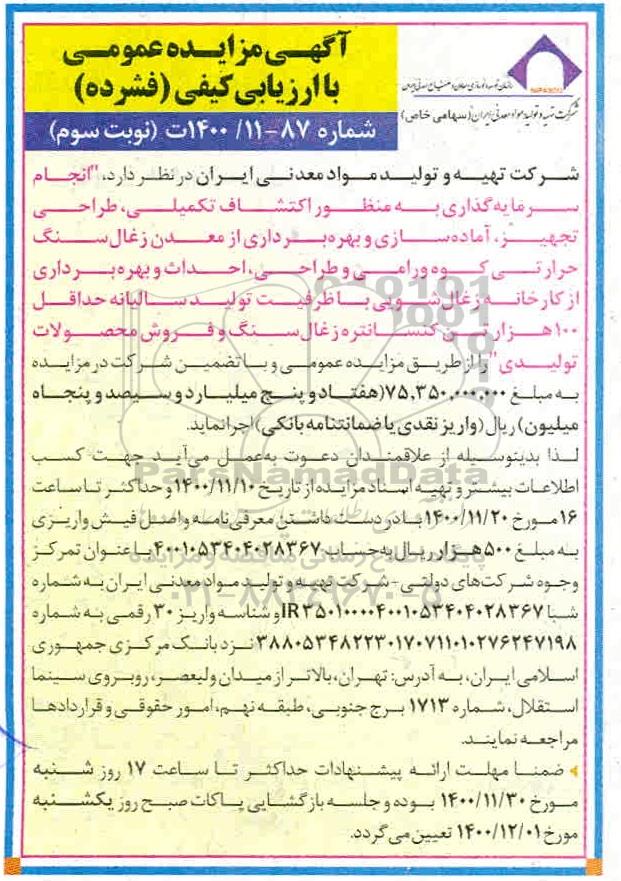 آگهی مزایده عمومی
با ارزیابی کیفی (فشرده)
شماره ۸۷-۱۱/ ۱۴۰۰ت (نوبت سوم)
شرکت تهیه و تولید مواد معدنی ایران (سهامی خاص)
شرکت تهیه و تولید مواد معدنی ایران در نظر دارد، "انجام
سرمایه‌گذاری به منظور اکتشاف تکمیلی، طراحی
تجهیز، آماده‌سازی و بهره‌برداری از معدن زغال‌سنگ
حرارتی کوه ورامی و طراحی، احداث و بهره‌برداری
از کارخانه زغال‌شویی با ظرفیت تولید سالیانه حداقل
۱۰۰ هزار تن کنسانتره زغال سنگ و فروش محصولات
تولیدی" را از طریق مزایده عمومی و با تضمین شرکت در مزایده
به مبلغ ۷۵,۳۵۰,۰۰۰,۰۰۰ (هفتاد و پنج میلیارد و سیصد و پنجاه
میلیون) ریال (واریز نقدی یا ضمانتنامه بانکی) اجرا نماید.
لذا بدینوسیله از علاقمندان دعوت به‌عمل می‌آید جهت کسب
اطلاعات بیشتر و تهیه اسناد مزایده از تاریخ ۱۴۰۰/۱۱/۱۰ و حداکثر تا ساعت
۱۶ مورخ ۱۴۰۰/۱۱/۲۰ با در دست داشتن معرفی‌نامه و اصل فیش واریزی
به مبلغ ۵۰۰ هزار ریال به‌حساب ۴۰۰۱۰۵۳۴۰۴۰۲۸۳۶۷ با عنوان تمرکز
وجوه شرکت‌های دولتی - شرکت تهیه و تولید مواد معدنی ایران به شماره
شبا IR۳۵۰۱۰۰۰۰۴۰۰۱۰۵۳۴۰۴۰۲۸۳۶۷ و شناسه واریز ۳۰ رقمی به شماره
۳۸۸۰۵۳۴۸۲۲۳۰۱۷۰۷۱۱۰۱۰۲۷۶۲۴۷۱۹۸ نزد بانک مرکزی جمهوری
اسلامی ایران، به آدرس: تهران، بالاتر از میدان ولیعصر، روبروی سینما
استقلال، شماره ۱۷۱۳ برج جنوبی، طبقه نهم، امور حقوقی و قراردادها
مراجعه نمایند.
ضمنا مهلت ارائه پیشنهادات حداکثر تا ساعت ۱۷ روز شنبه
مورخ ۱۴۰۰/۱۱/۳۰ بوده و جلسه بازگشایی پاکات صبح روز یکشنبه
مورخ ۱۴۰۰/۱۲/۰۱ تعیین می گردد.
ParsNamadData
۰۲۱-۸۸۳۴۹۶۷۰-۵